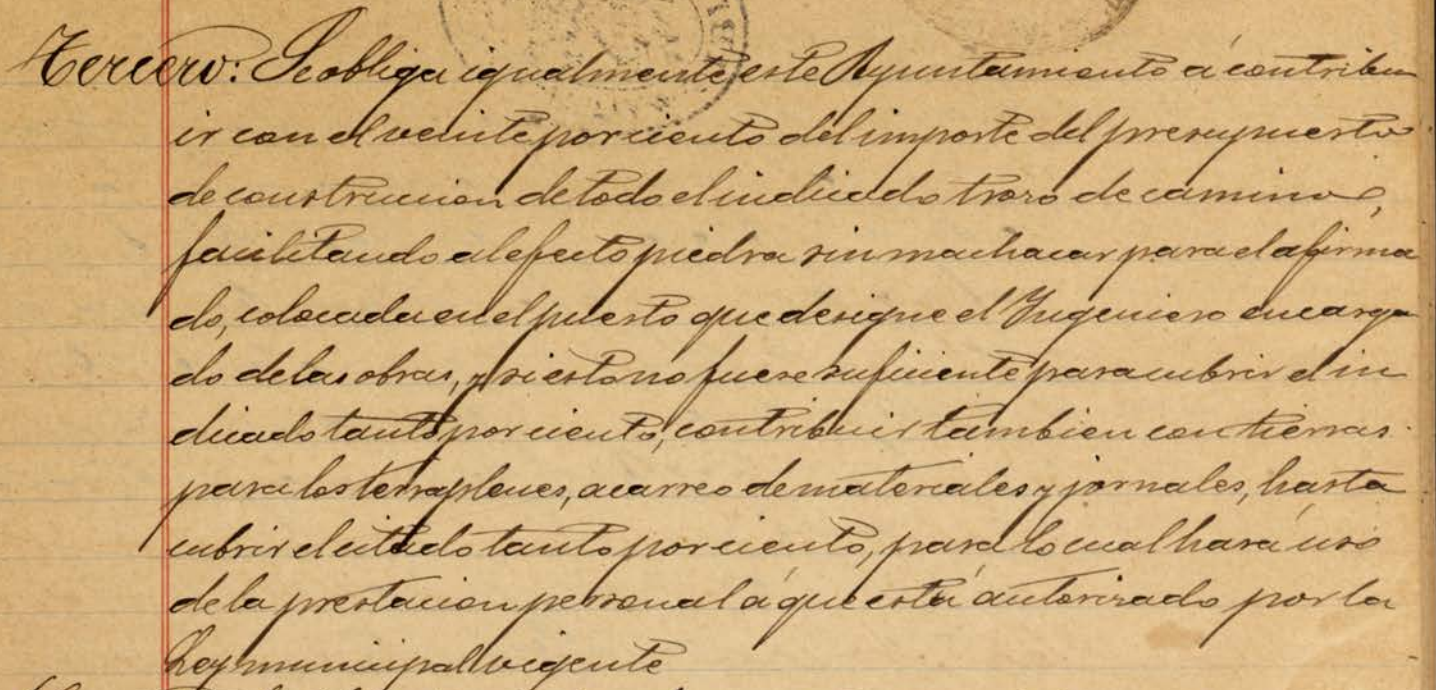 Tercero: Se obliga igualmente este Ayuntamiento á contribu
ir con el veinte por ciento del importe del presupuesto
de construccion de todo el indicado trozo de camino,
facilitando al efecto piedra sin machacar para el afirma
do, colocada en el puesto que designe el Ingeniero encarga
do de las obras, y si esto no fuere suficiente para cubrir el in
dicado tanto por ciento, contribuir tambien con tierras
para los terraplenes, acarreo de materiales y jornales, hasta
cubrir el citado tanto por ciento, para lo cual hará uso
de la prestacion personal á que está autorizado por la
Ley municipal vigente